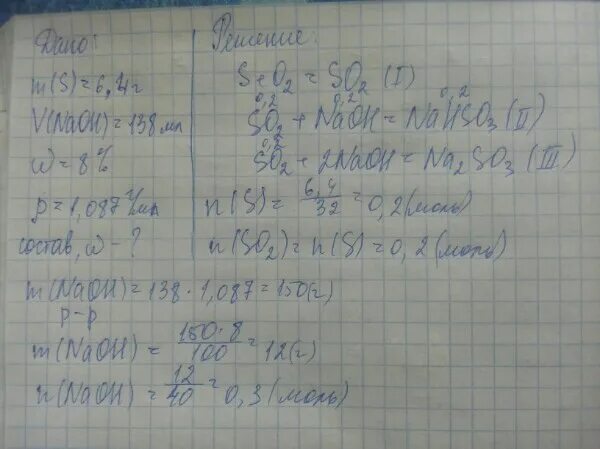 Дано:
m(S) = 6,4г
V(NaOH) = 138 мл
ω = 8%
ρ = 1,087 г/мл
состав, ω - ?
Решение:
S + O₂ = SO₂ (I)
0,2 0,2 0,2
SO₂ + NaOH = NaHSO₃ (II)
0,2
SO₂ + 2NaOH = Na₂SO₃ (III)
n(S) = 6,4/32 = 0,2 (моль)
n(SO₂) = n(S) = 0,2 (моль)
m(NaOH) = 138 · 1,087 = 150 (г)
р-р
m(NaOH) = 150·8/100 = 12 (г)
n(NaOH) = 12/40 = 0,3 (моль)